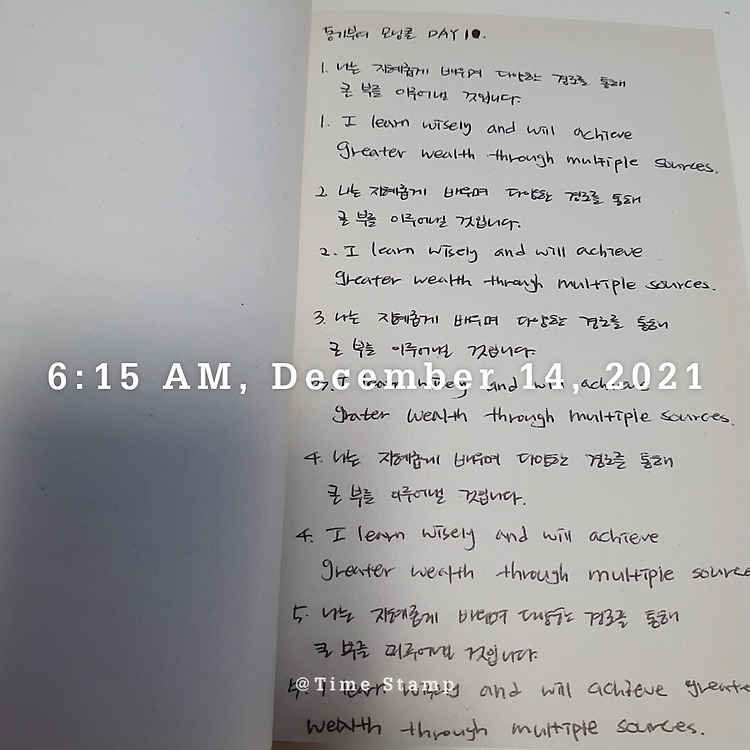 동기부여 모닝콜 DAY 10.
1. 나는 지혜롭게 배우며 다양한 경로를 통해
큰 부를 이루어낼 것입니다.
1. I learn wisely and will achieve
greater wealth through multiple sources.
2. 나는 지혜롭게 배우며 다양한 경로를 통해
큰 부를 이루어낼 것입니다.
2. I learn wisely and will achieve
greater wealth through multiple sources.
3. 나는 지혜롭게 배우며 다양한 경로를 통해
큰 부를 이루어낼 것입니다.
6:15 AM, December 14, 2021
3. I learn wisely and will achieve
grater wealth through multiple sources.
4. 나는 지혜롭게 배우며 다양한 경로를 통해
큰 부를 이루어낼 것입니다.
4. I learn wisely and will achieve
greater wealth through multiple source
5. 나는 지혜롭게 배우며 다양한 경로를 통해
큰 부를 이루어낼 것입니다.
@Time Stamp
5. I learn wisely and will achieve greate
wealth through multiple sources.